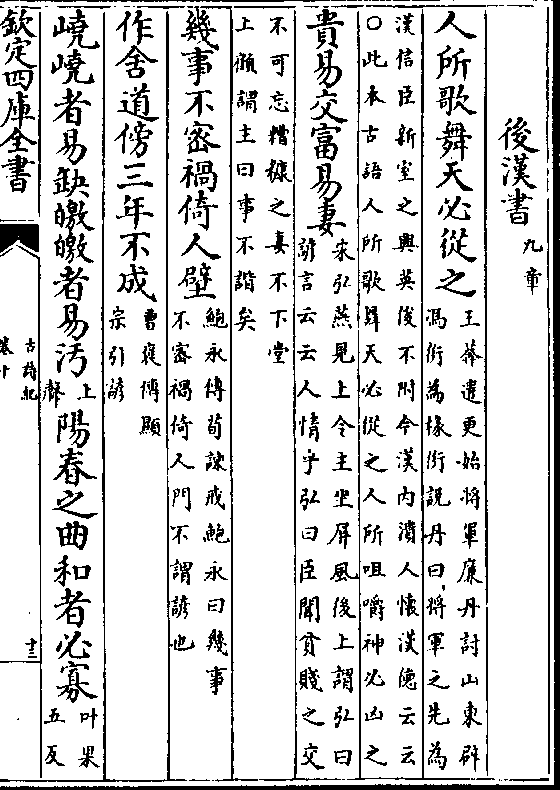 後漢書九章
人所歌舞天必從之王莽遣更始將軍廉丹討山東辟
馮衍為掾衍說丹曰將軍之先為
漢信臣新室之興英俊不附今漢內潰人懷漢德云云
○此本古語人所歌舞天必從之人所咀嚼神必凶之
貴易交富易妻宋弘燕見上令主坐屏風後上謂弘曰
諺言云云人情乎弘曰臣聞貧賤之交
不可忘糟糠之妻不下堂
上顧謂主曰事不諧矣
幾事不密禍倚人壁鮑永傳荀諫戒鮑永曰幾事
不密禍倚人門不謂諺也
作舍道傍三年不成曹褒傳顯
宗引諺
嶢嶢者易缺皦皦者易汚上
聲陽春之曲和者必寡叶果
五反
欽定四庫全書
古詩紀
卷十
十三